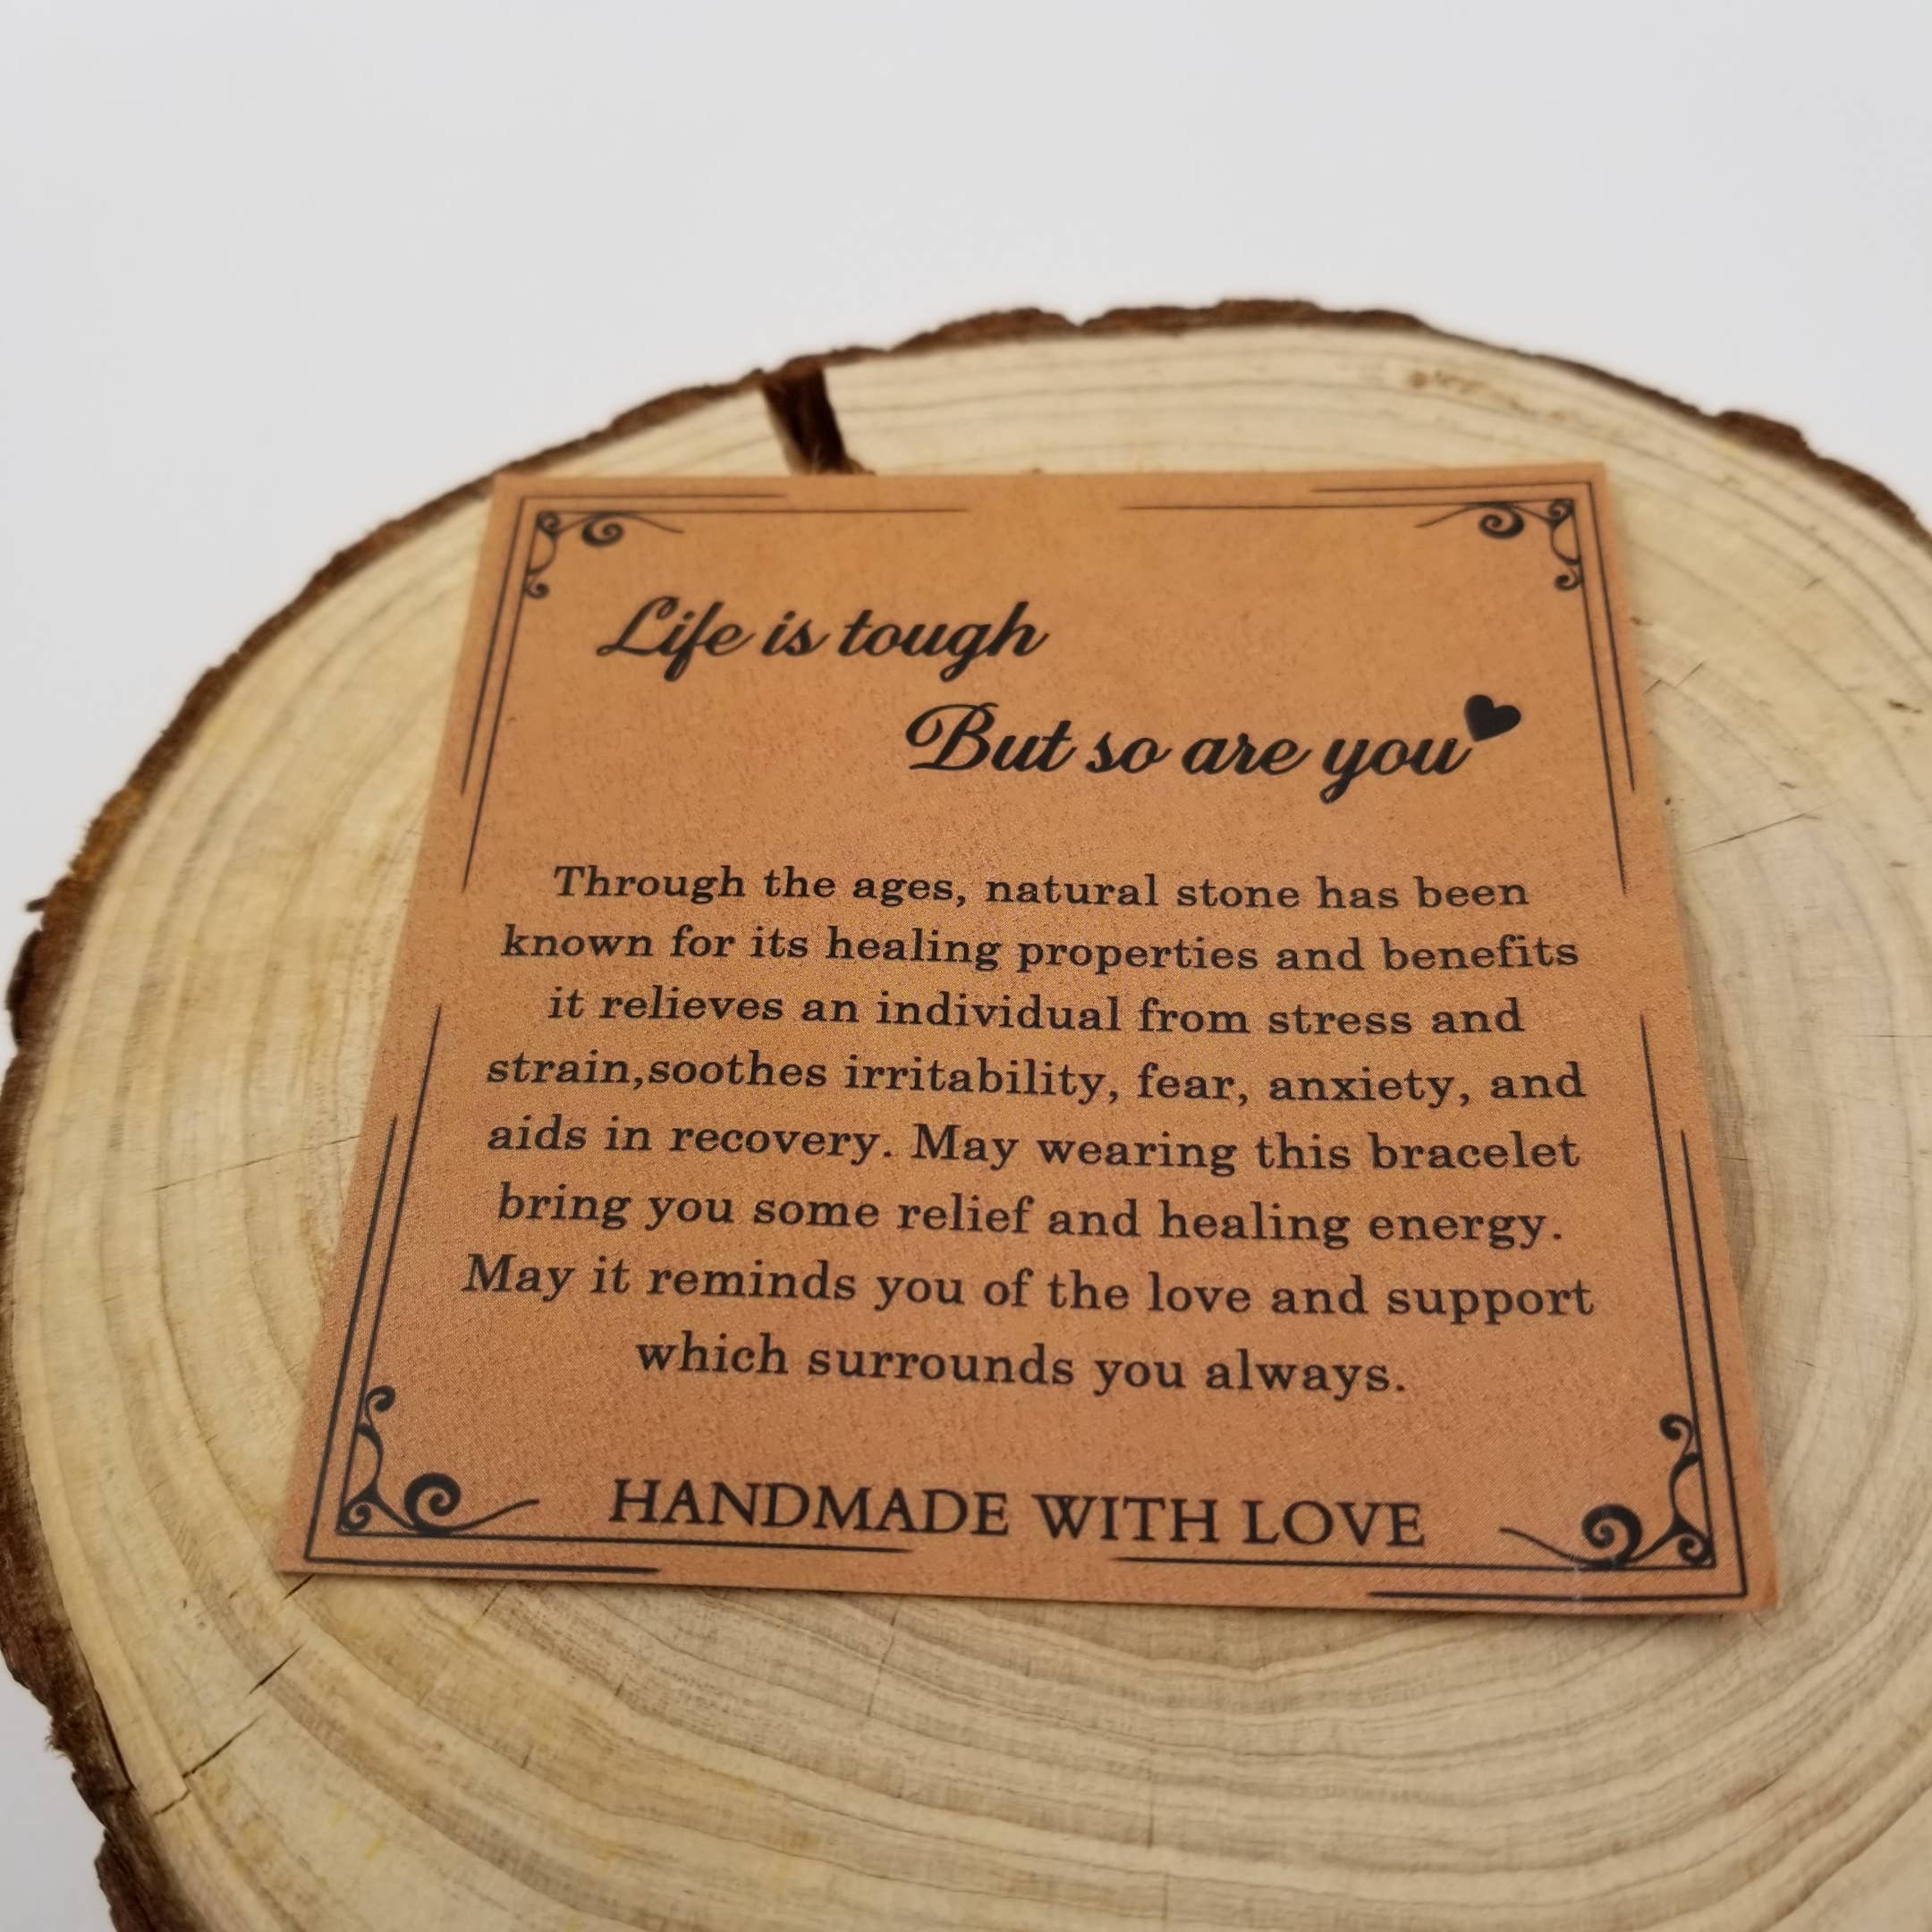 Life is tough
But so are you
Through the ages, natural stone has been
known for its healing properties and benefits
it relieves an individual from stress and
strain,soothes irritability, fear, anxiety, and
aids in recovery. May wearing this bracelet
bring you some relief and healing energy.
May it reminds you of the love and support
which surrounds you always.
HANDMADE WITH LOVE